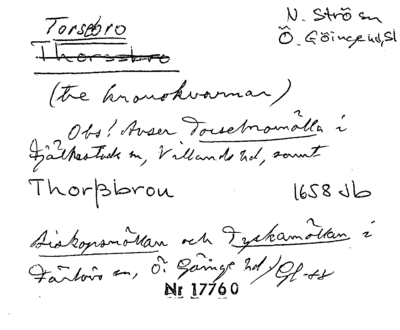 Torsebro
N. Strö sn
Thorssbro
Ö. Göinge hd, Sk
(tre kronokvarnar)
Obs! Avser Torsebromölla i
Fjälkestads sn, Villands hd, samt
Thorßbrou 1658 Jb
Biskopsmöllan och Tyskamöllan i
Färlöv sn, Ö. Göinge hd/Gl-ss
Nr 17760